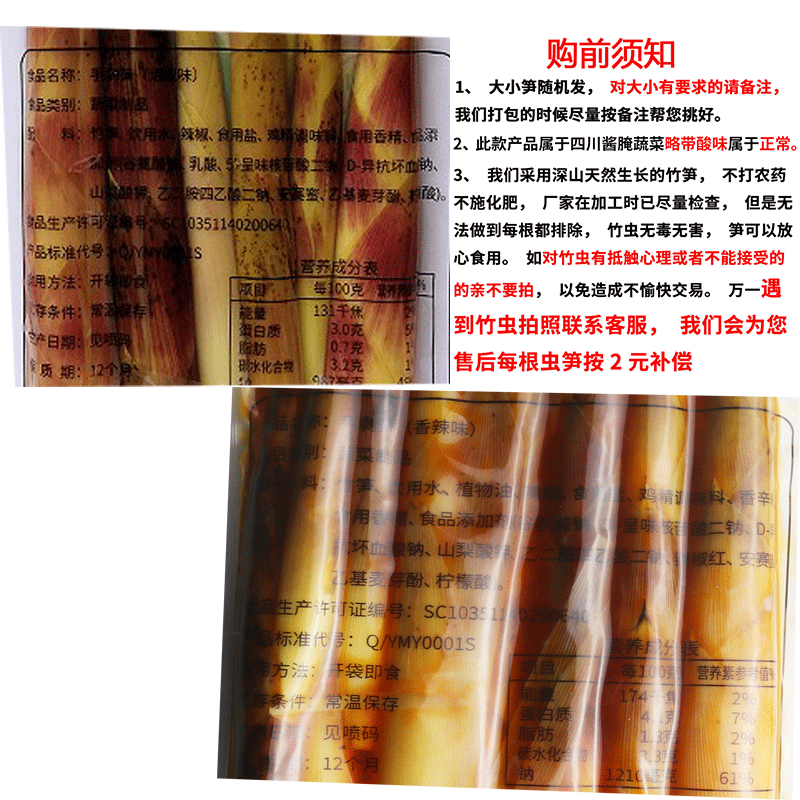 购前须知
1、 大小笋随机发， 对大小有要求的请备注，
我们打包的时候尽量按备注帮您挑好。
2、此款产品属于四川酱腌蔬菜略带酸味属于正常。
3、 我们采用深山天然生长的竹笋， 不打农药
不施化肥， 厂家在加工时已尽量检查， 但是无
法做到每根都排除， 竹虫无毒无害， 笋可以放
心食用。 如对竹虫有抵触心理或者不能接受的
的亲不要拍， 以免造成不愉快交易。 万一遇
到竹虫拍照联系客服， 我们会为您
售后每根虫笋按 2 元补偿
食品名称：
食品类别：蔬菜制品
料：竹笋、饮用水、辣椒、食用盐、鸡精调味料、食用香精、食品添
乳酸、5'-呈味核苷酸二钠、D-异抗坏血酸钠、
山梨酸钾、乙二胺四乙酸二钠、安赛蜜、乙基麦芽酚、柠
食品生产许可证编号：SC10351140200640
产品标准代号：Q/YMY0001S
食用方法：开袋即食
贮存条件：常温保存
生产日期：见喷码
保质期：12个月
营养成分表
项目 每100克 营养素 %
能量 131千焦 2%
蛋白质 3.0克 5%
脂肪 0.7克 1%
碳水化合物 3.2克 1%
品名称： （香辣味）
蔬菜制品
料：竹笋、饮用水、植物油、 鸡精调味料、香辛
食用香精、食品添加剂 呈味核苷酸二钠、D-
抗坏血酸钠、山梨酸钾、乙二胺四乙酸二钠、辣椒红、安赛
乙基麦芽酚、柠檬酸。
品生产许可证编号：SC10351140200640
品标准代号：Q/YMY0001S
用方法：开袋即食
存条件：常温保存
见喷码
12个月
营养成分表
项目 每100克 营养素参考值%
能量 174千焦 2%
蛋白质 4.1克 7%
脂肪 1.3克 2%
碳水化合物 3.3克 1%
钠 61%